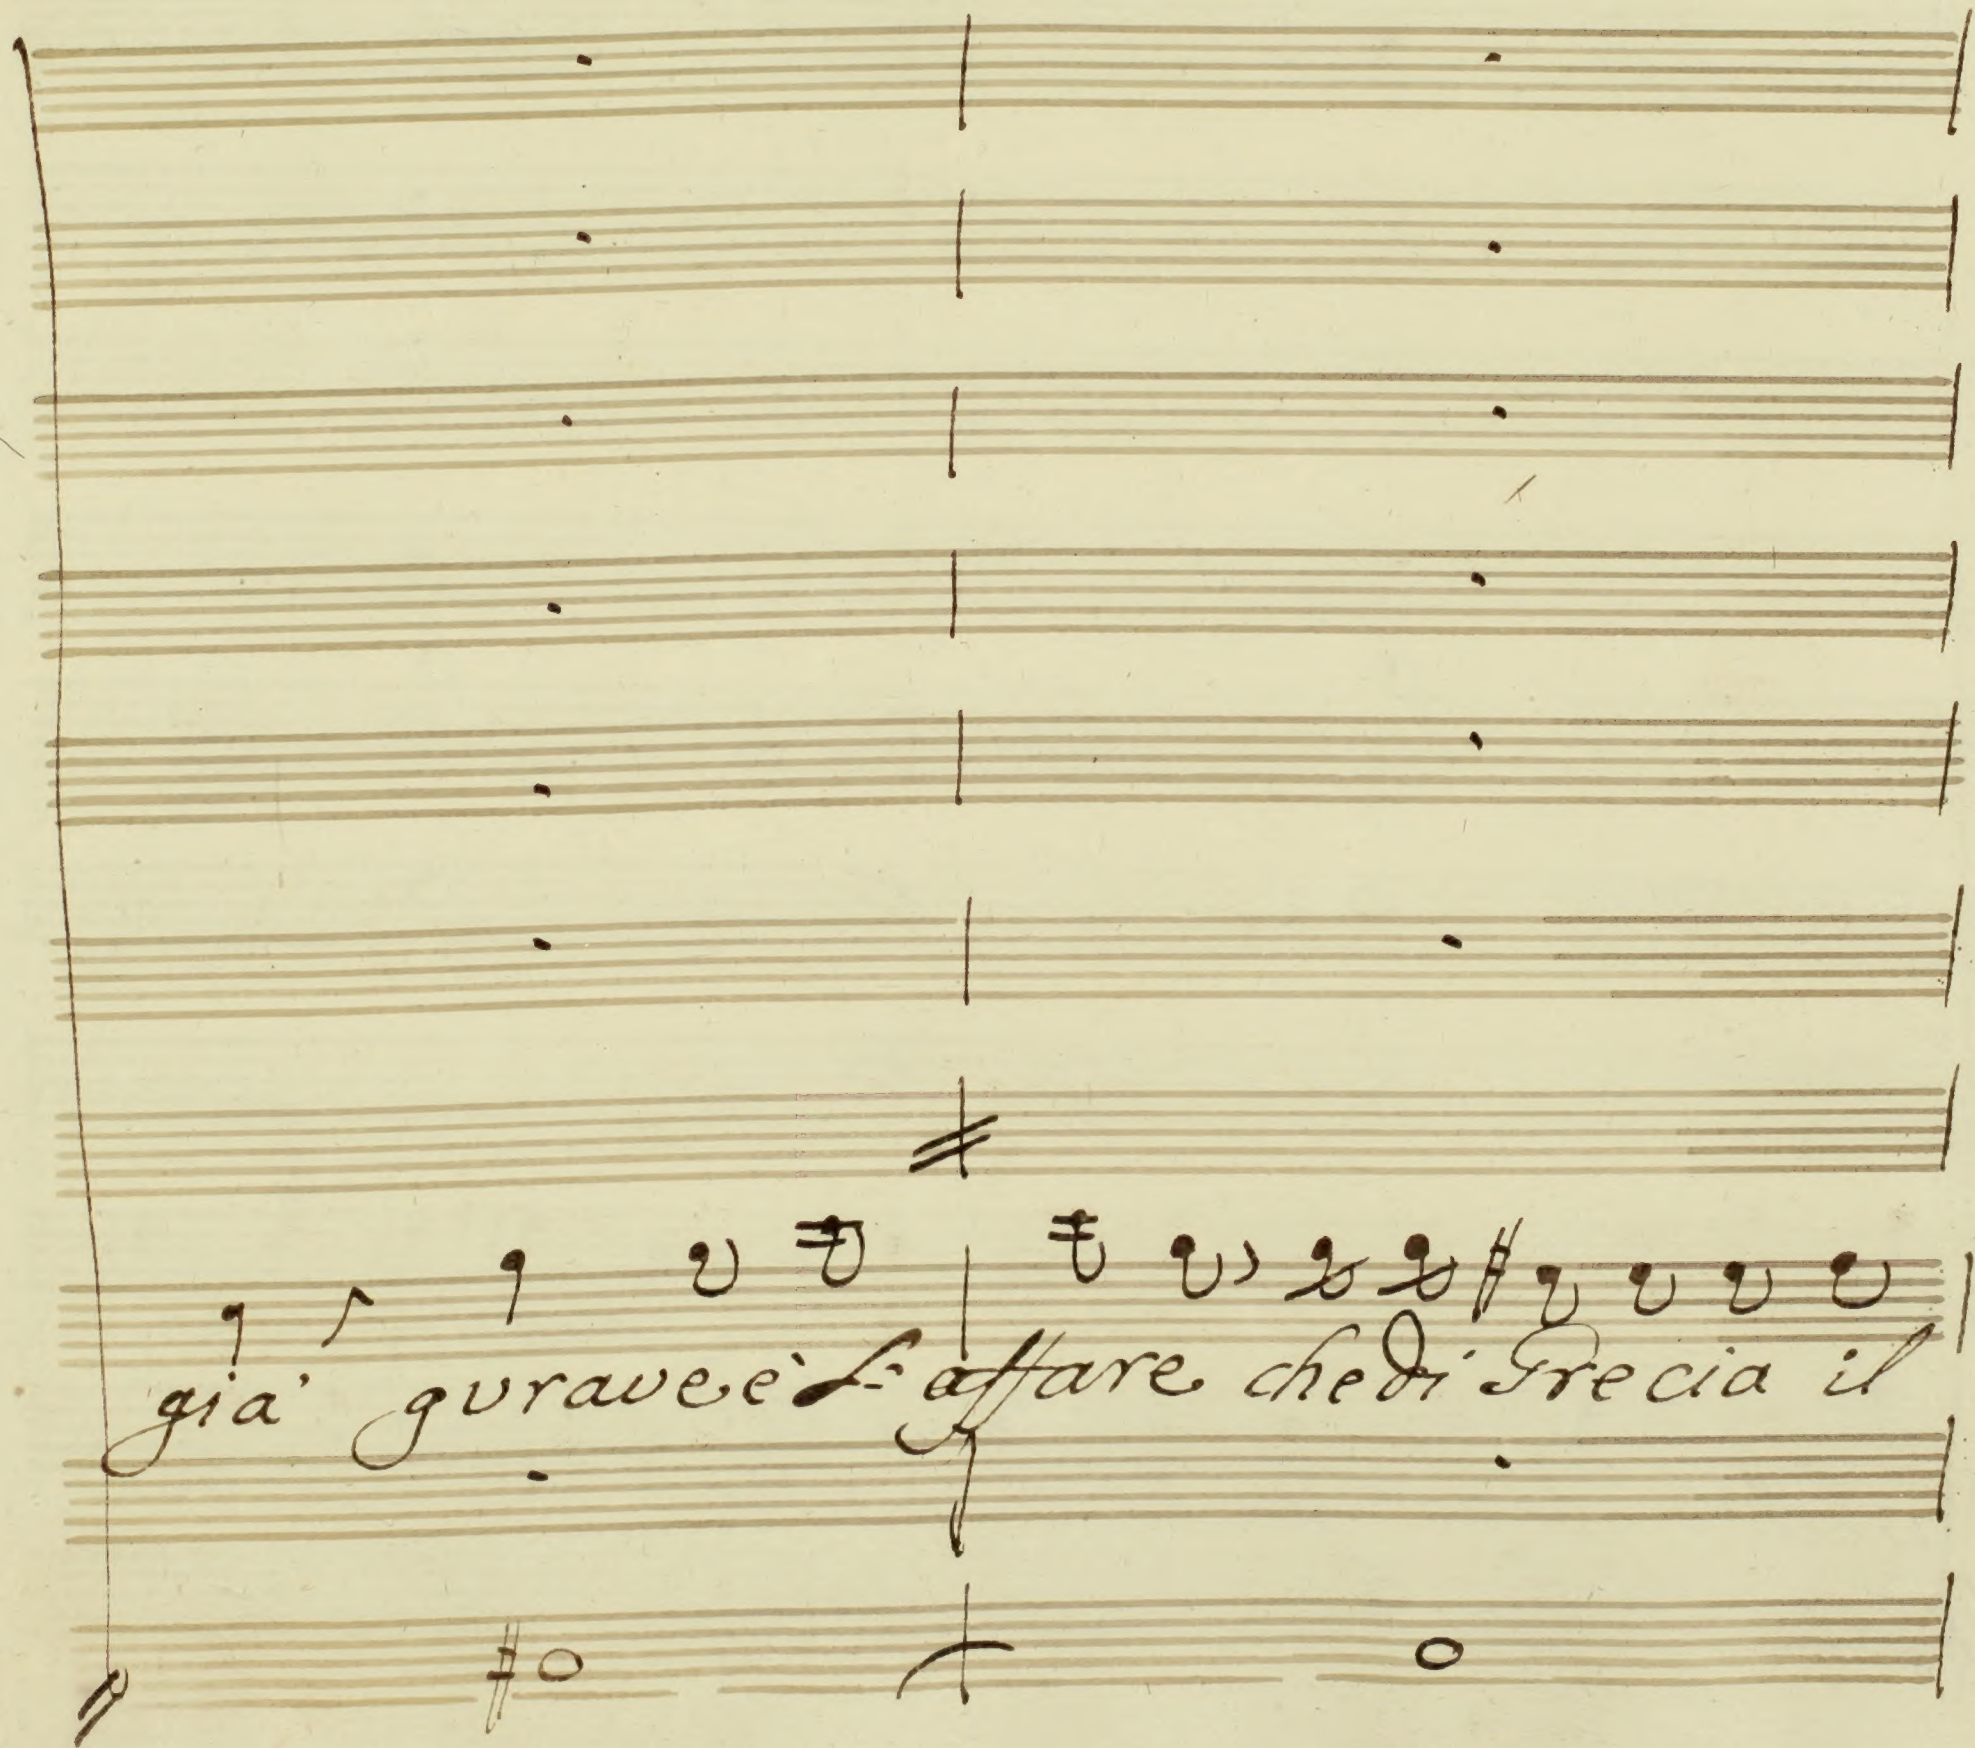 già gurave è L'affare che di Grecia il